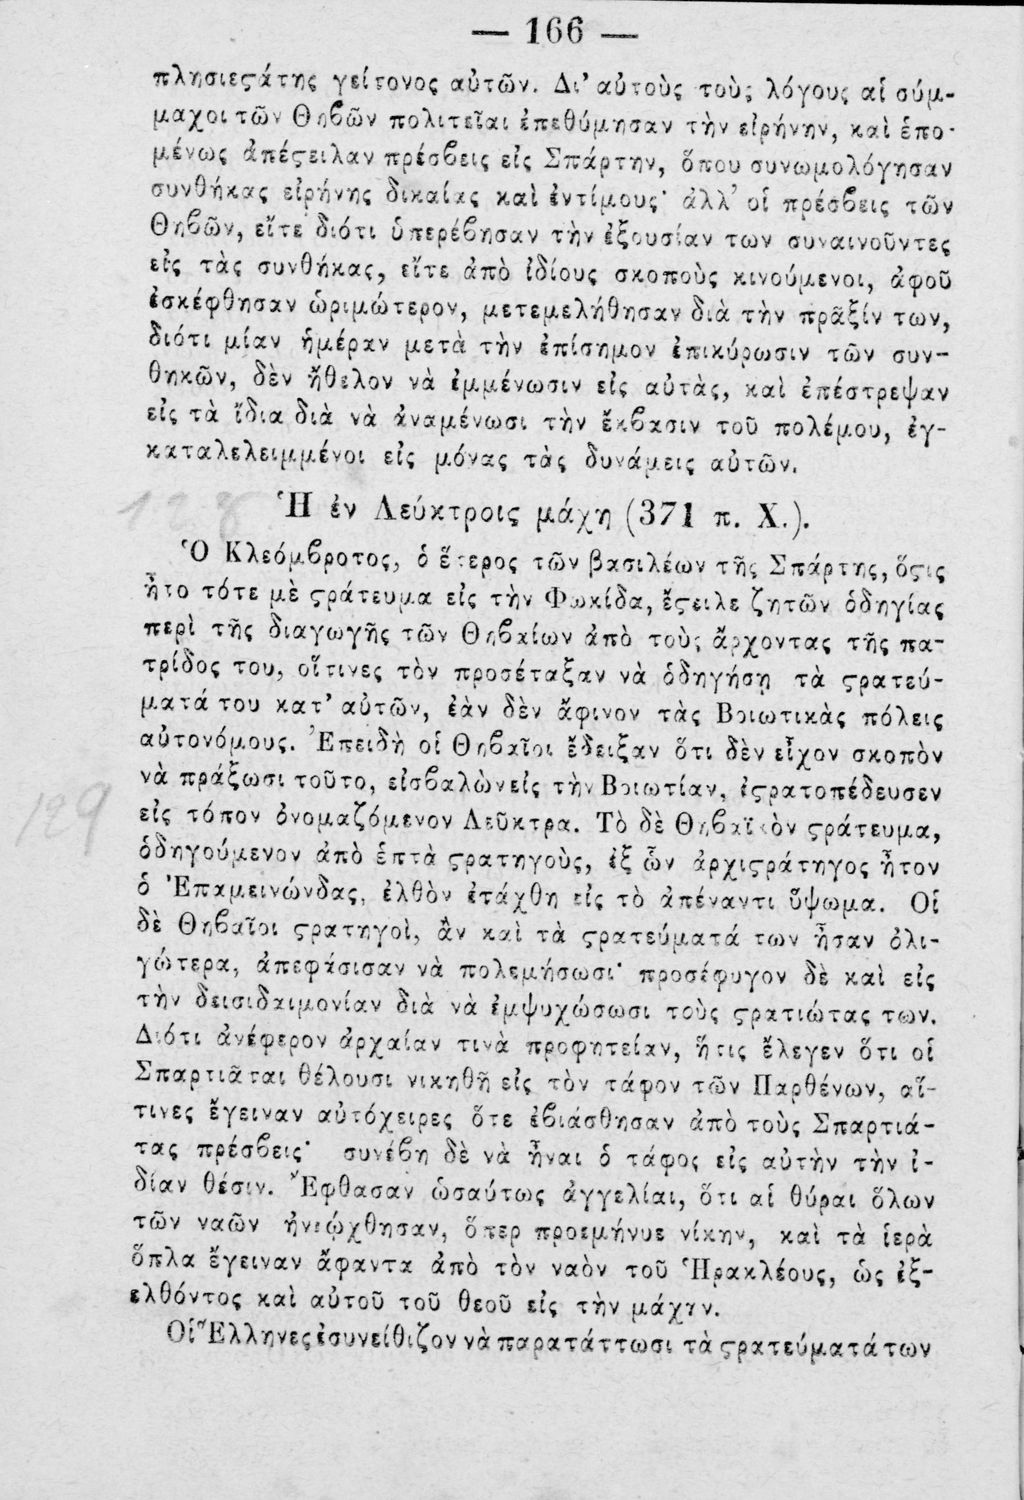 — 166 —
πλησιεϛάτης γείτονος αὐτῶν. Δι' αὐτοὺς τοὺς λόγους αἱ σύμ-
μαχοι τῶν Θηβῶν πολιτεῖαι ἐπεθύμησαν τὴν εἰρήνην, καὶ ἑπο-
μένως ἀπέϛειλαν πρέσβεις εἰς Σπάρτην, ὅπου συνωμολόγησαν
συνθήκας εἰρήνης δικαίας καὶ ἐντίμους· ἀλλ' οἱ πρέσβεις τῶν
Θηβῶν, εἴτε διότι ὑπερέβησαν τὴν ἐξουσίαν των συναινοῦντες
εἰς τὰς συνθήκας, εἴτε ἀπὸ ἰδίους σκοποὺς κινούμενοι, ἀφοῦ
ἐσκέφθησαν ὡριμώτερον, μετεμελήθησαν διὰ τὴν πρᾶξίν των,
διότι μίαν ἡμέραν μετὰ τὴν ἐπίσημον ἐπικύρωσιν τῶν συν-
θηκῶν, δὲν ἤθελον νὰ ἐμμένωσιν εἰς αὐτὰς, καὶ ἐπέστρεψαν
εἰς τὰ ἴδια διὰ νὰ ἀναμένωσι τὴν ἔκβασιν τοῦ πολέμου, ἐγ-
καταλελειμμένοι εἰς μόνας τὰς δυνάμεις αὐτῶν.
Ἡ ἐν Λεύκτροις μάχη (371 π. Χ.).
Ὁ Κλεόμβροτος, ὁ ἕτερος τῶν βασιλέων τῆς Σπάρτης, ὅϛις
ἦτο τότε μὲ ϛράτευμα εἰς τὴν Φωκίδα, ἔϛειλε ζητῶν ὁδηγίας
περὶ τῆς διαγωγῆς τῶν Θηβαίων ἀπὸ τοὺς ἄρχοντας τῆς πα-
τρίδος του, οἵτινες τὸν προσέταξαν νὰ ὁδηγήσῃ τὰ ϛρατεύ-
ματά του κατ' αὐτῶν, ἐὰν δὲν ἄφινον τὰς Βοιωτικὰς πόλεις
αὐτονόμους. Ἐπειδὴ οἱ Θηβαῖοι ἔδειξαν ὅτι δὲν εἶχον σκοπὸν
νὰ πράξωσι τοῦτο, εἰσβαλὼν εἰς τὴν Βοιωτίαν, ἐϛρατοπέδευσεν
129
εἰς τόπον ὀνομαζόμενον Λεῦκτρα. Τὸ δὲ Θηβαϊκὸν ϛράτευμα,
ὁδηγούμενον ἀπὸ ἑπτὰ ϛρατηγοὺς, ἐξ ὧν ἀρχιϛράτηγος ἦτον
ὁ Ἐπαμεινώνδας, ἐλθὸν ἐτάχθη εἰς τὸ ἀπέναντι ὕψωμα. Οἱ
δὲ Θηβαῖοι ϛρατηγοὶ, ἂν καὶ τὰ ϛρατεύματά των ἦσαν ὀλι-
γώτερα, ἀπεφάσισαν νὰ πολεμήσωσι· προσέφυγον δὲ καὶ εἰς
τὴν δεισιδαιμονίαν διὰ νὰ ἐμψυχώσωσι τοὺς ϛρατιώτας των.
Διότι ἀνέφερον ἀρχαίαν τινὰ προφητείαν, ἥτις ἔλεγεν ὅτι οἱ
Σπαρτιᾶται θέλουσι νικηθῆ εἰς τὸν τάφον τῶν Παρθένων, αἵ-
τινες ἔγειναν αὐτόχειρες ὅτε ἐβιάσθησαν ἀπὸ τοὺς Σπαρτιά-
τας πρέσβεις· συνέβη δὲ νὰ ἦναι ὁ τάφος εἰς αὐτὴν τὴν ἰ-
δίαν θέσιν. Ἔφθασαν ὡσαύτως ἀγγελίαι, ὅτι αἱ θύραι ὅλων
τῶν ναῶν ἠνεῴχθησαν, ὅπερ προεμήνυε νίκην, καὶ τὰ ἱερὰ
ὅπλα ἔγειναν ἄφαντα ἀπὸ τὸν ναὸν τοῦ Ἡρακλέους, ὡς ἐξ-
ελθόντος καὶ αὐτοῦ τοῦ θεοῦ εἰς τὴν μάχην.
Οἱ Ἕλληνες ἐσυνείθιζον νὰ παρατάττωσι τὰ ϛρατεύματά των